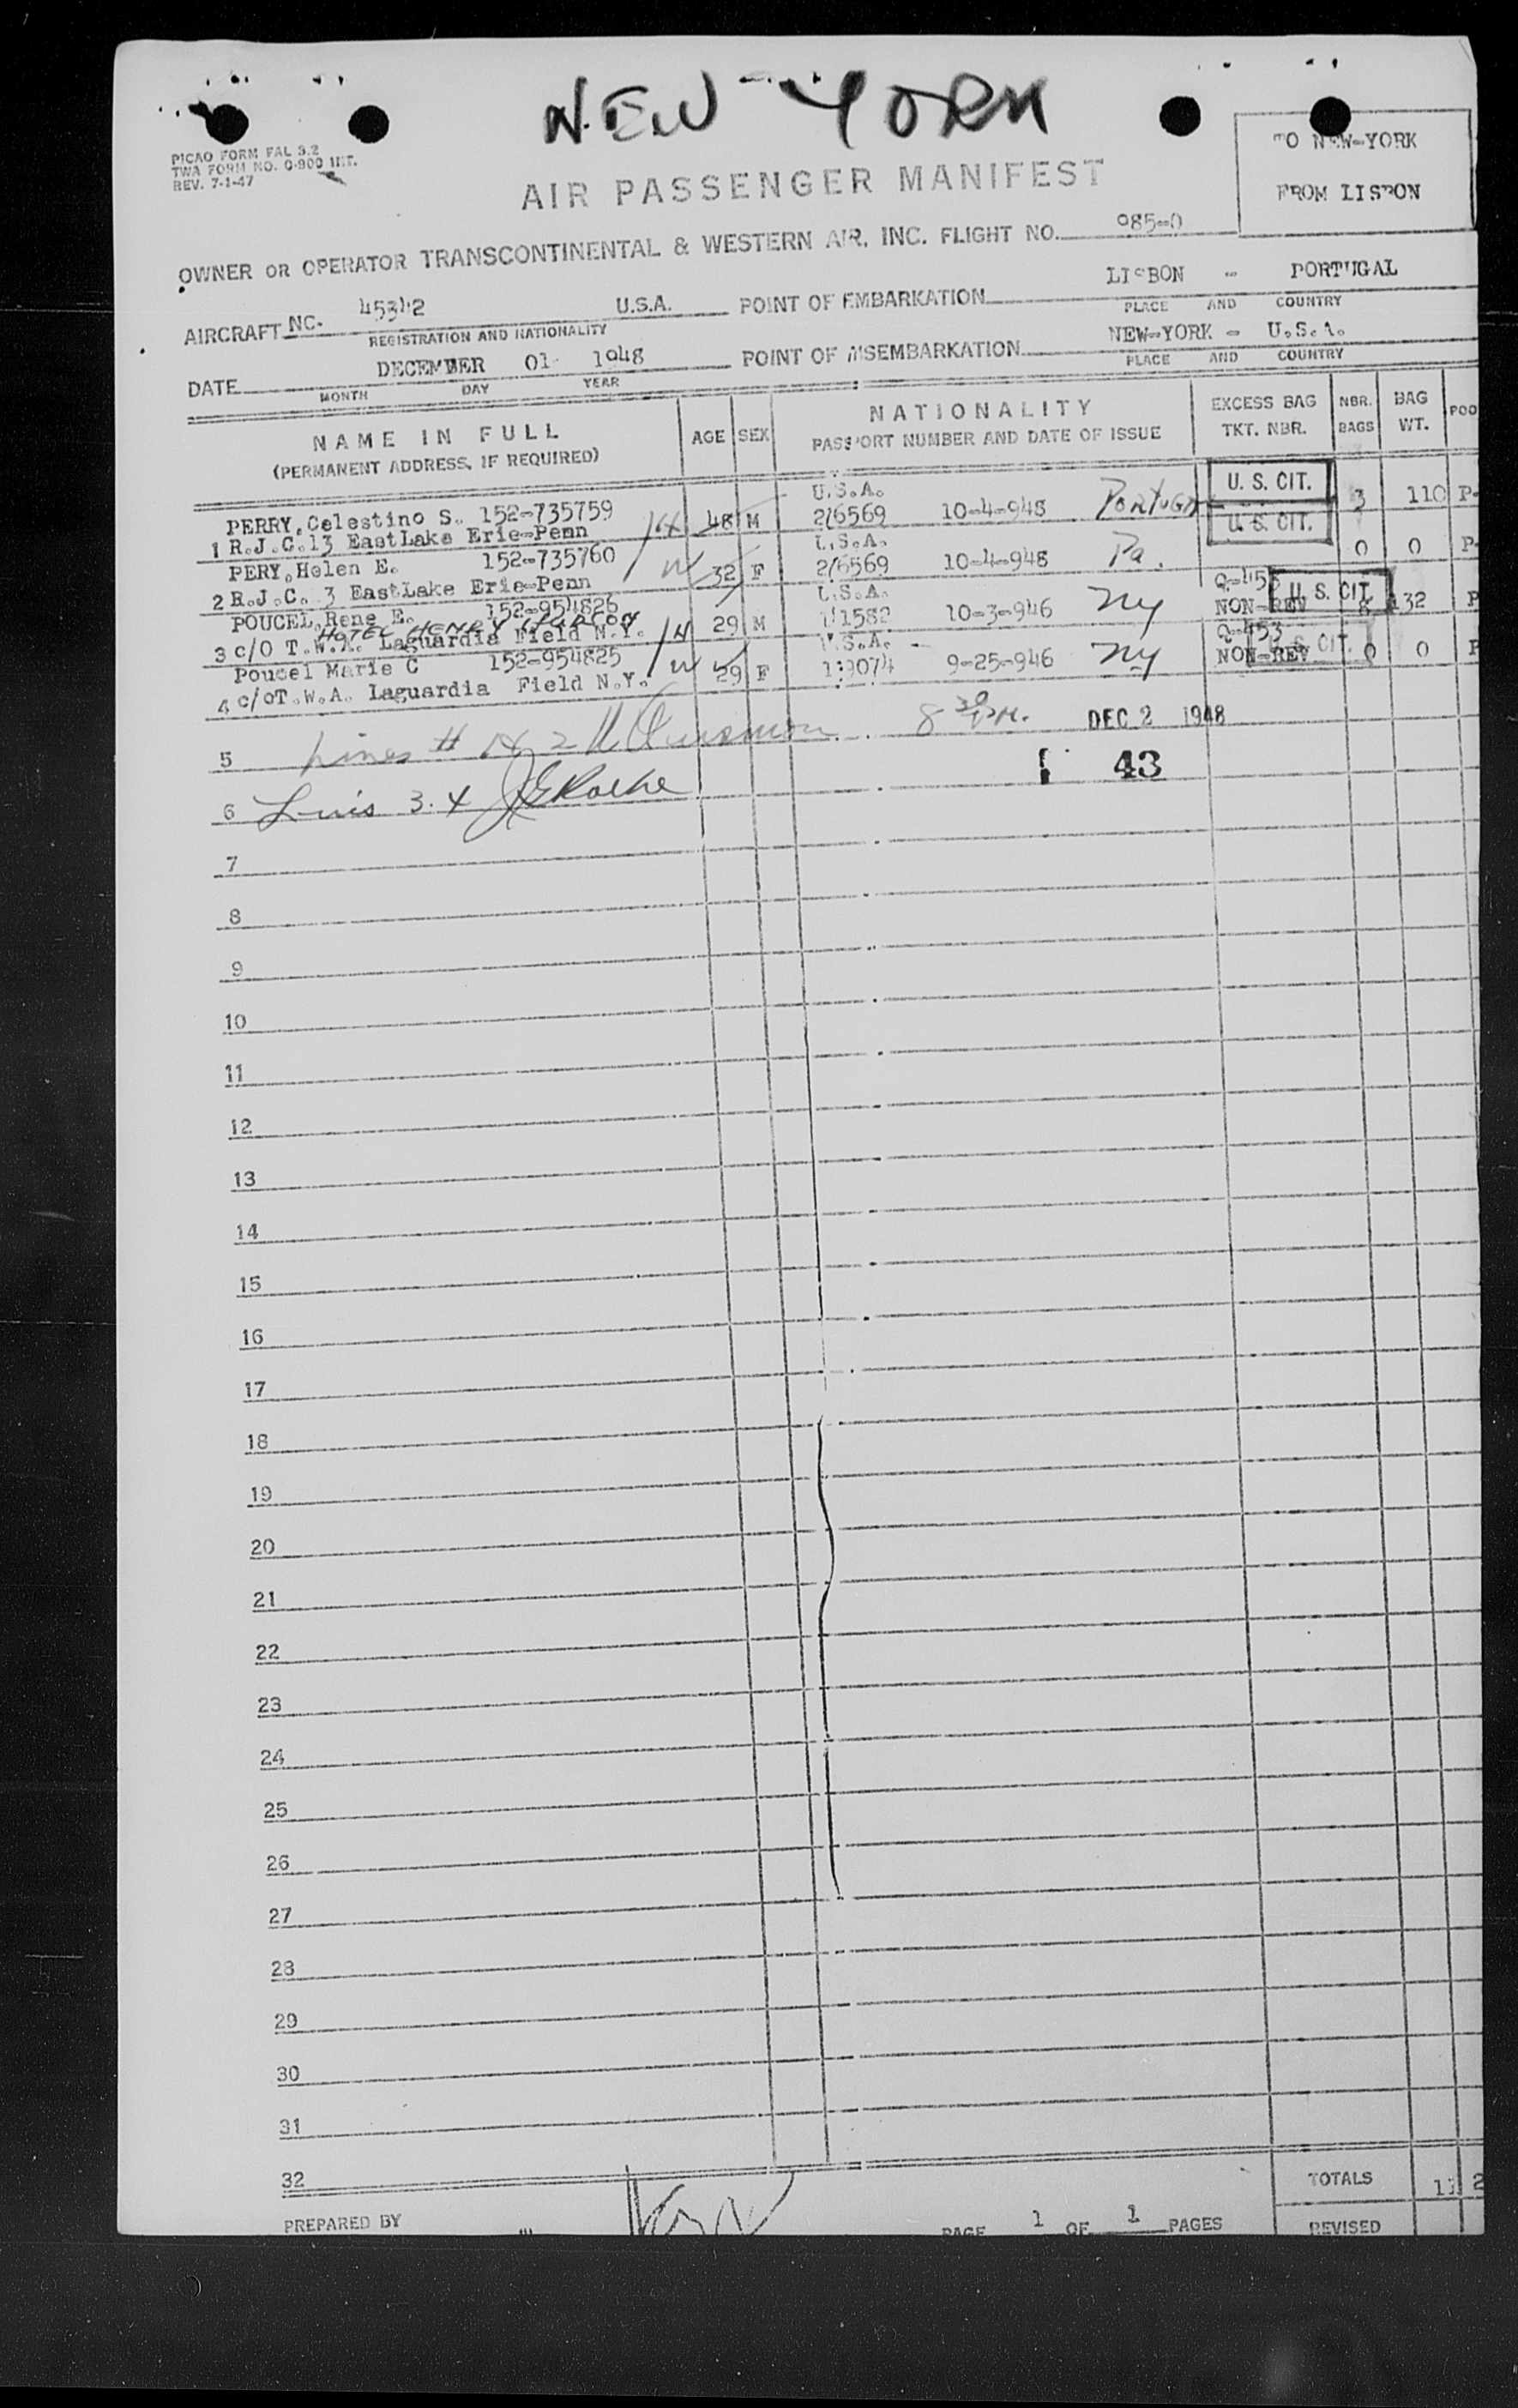 NEW YORK
PICAO FORM FAL 3.2
TWA FORM NO. O-900 INT.
REV. 7-1-47
TO NEW-YORK
FROM LISBON
AIR PASSENGER MANIFEST
OWNER OR OPERATOR TRANSCONTINENTAL & WESTERN AIR, INC. FLIGHT NO. 985-0
AIRCRAFT NC- 45342 U.S.A. POINT OF EMBARKATION LISBON - PORTUGAL
REGISTRATION AND NATIONALITY PLACE AND COUNTRY
DATE DECEMBER 01 1948 POINT OF DISEMBARKATION NEW-YORK - U.S.A.
MONTH DAY YEAR PLACE AND COUNTRY
NAME IN FULL
(PERMANENT ADDRESS, IF REQUIRED)
AGE SEX
NATIONALITY
PASSPORT NUMBER AND DATE OF ISSUE
EXCESS BAG
TKT. NBR.
NBR.
BAGS
BAG
WT.
POO
PERRY, Celestino S. 152-735759 U.S.A. U. S. CIT.
1 R.J.C.13 EastLake Erie-Penn 48 M 216569 10-4-948 PORTUGAL 3 110 P-
PERY, Helen E. 152-735760 U.S.A. U. S. CIT.
2 R.J.C. 3 EastLake Erie-Penn W 32 F 216569 10-4-948 Pa. 0 0 P-
POUCEL, Rene E. 152-954826 U.S.A. Q-453 U. S. CIT.
HOTEL HENRY
3 c/o T.W.A. Laguardia Field N.Y. 29 M 1582 10-3-946 NY NON-REV 132 P
Poucel Marie C 152-954825 U.S.A. Q-453 U. S. CIT.
4 c/oT.W.A. Laguardia Field N.Y. W 29 F 9074 9-25-946 NY NON-REV 0 0 P
5 Lines # 1 & 2 8 30 P.M. DEC 2 1948
43
6 Lines 3.4
7
8
9
10
11
12
13
14
15
16
17
18
19
20
21
22
23
24
25
26
27
28
29
30
31
32
TOTALS
PREPARED BY
PAGE 1 OF 1 PAGES
REVISED